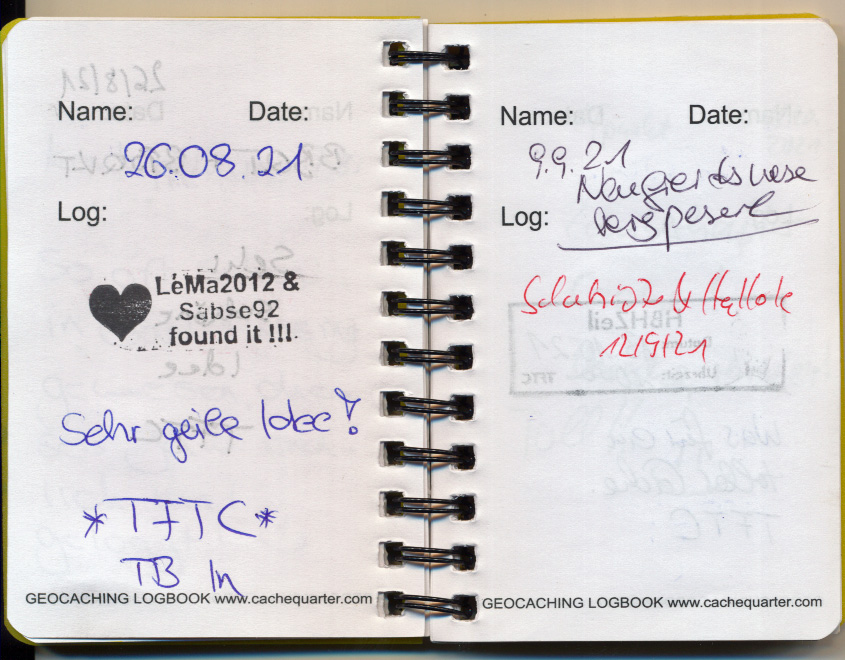 Name: Date:
26.08.21
Log:
LéMa2012 &
Sabse92
found it !!!
Sehr geile Idee!
*TFTC*
TB In
GEOCACHING LOGBOOK www.cachequarter.com
Name: Date:
9.9.21
Log:
12/9/21
GEOCACHING LOGBOOK www.cachequarter.com